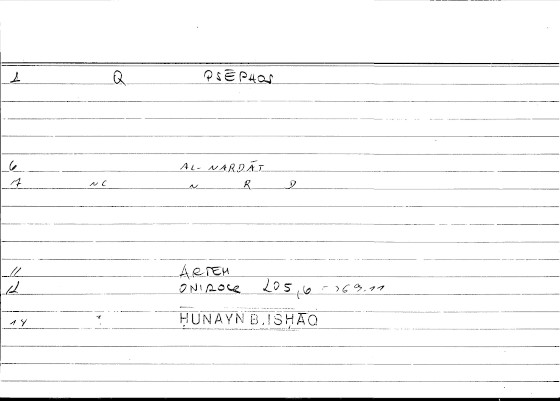 1 Q PSĒPHOS
6 AL-NARDĀT
7 NC N R D
11 ARTEM
12 ONIROCR 205,6 = 369.11
14 1 ḤUNAYN B. ISḤĀQ